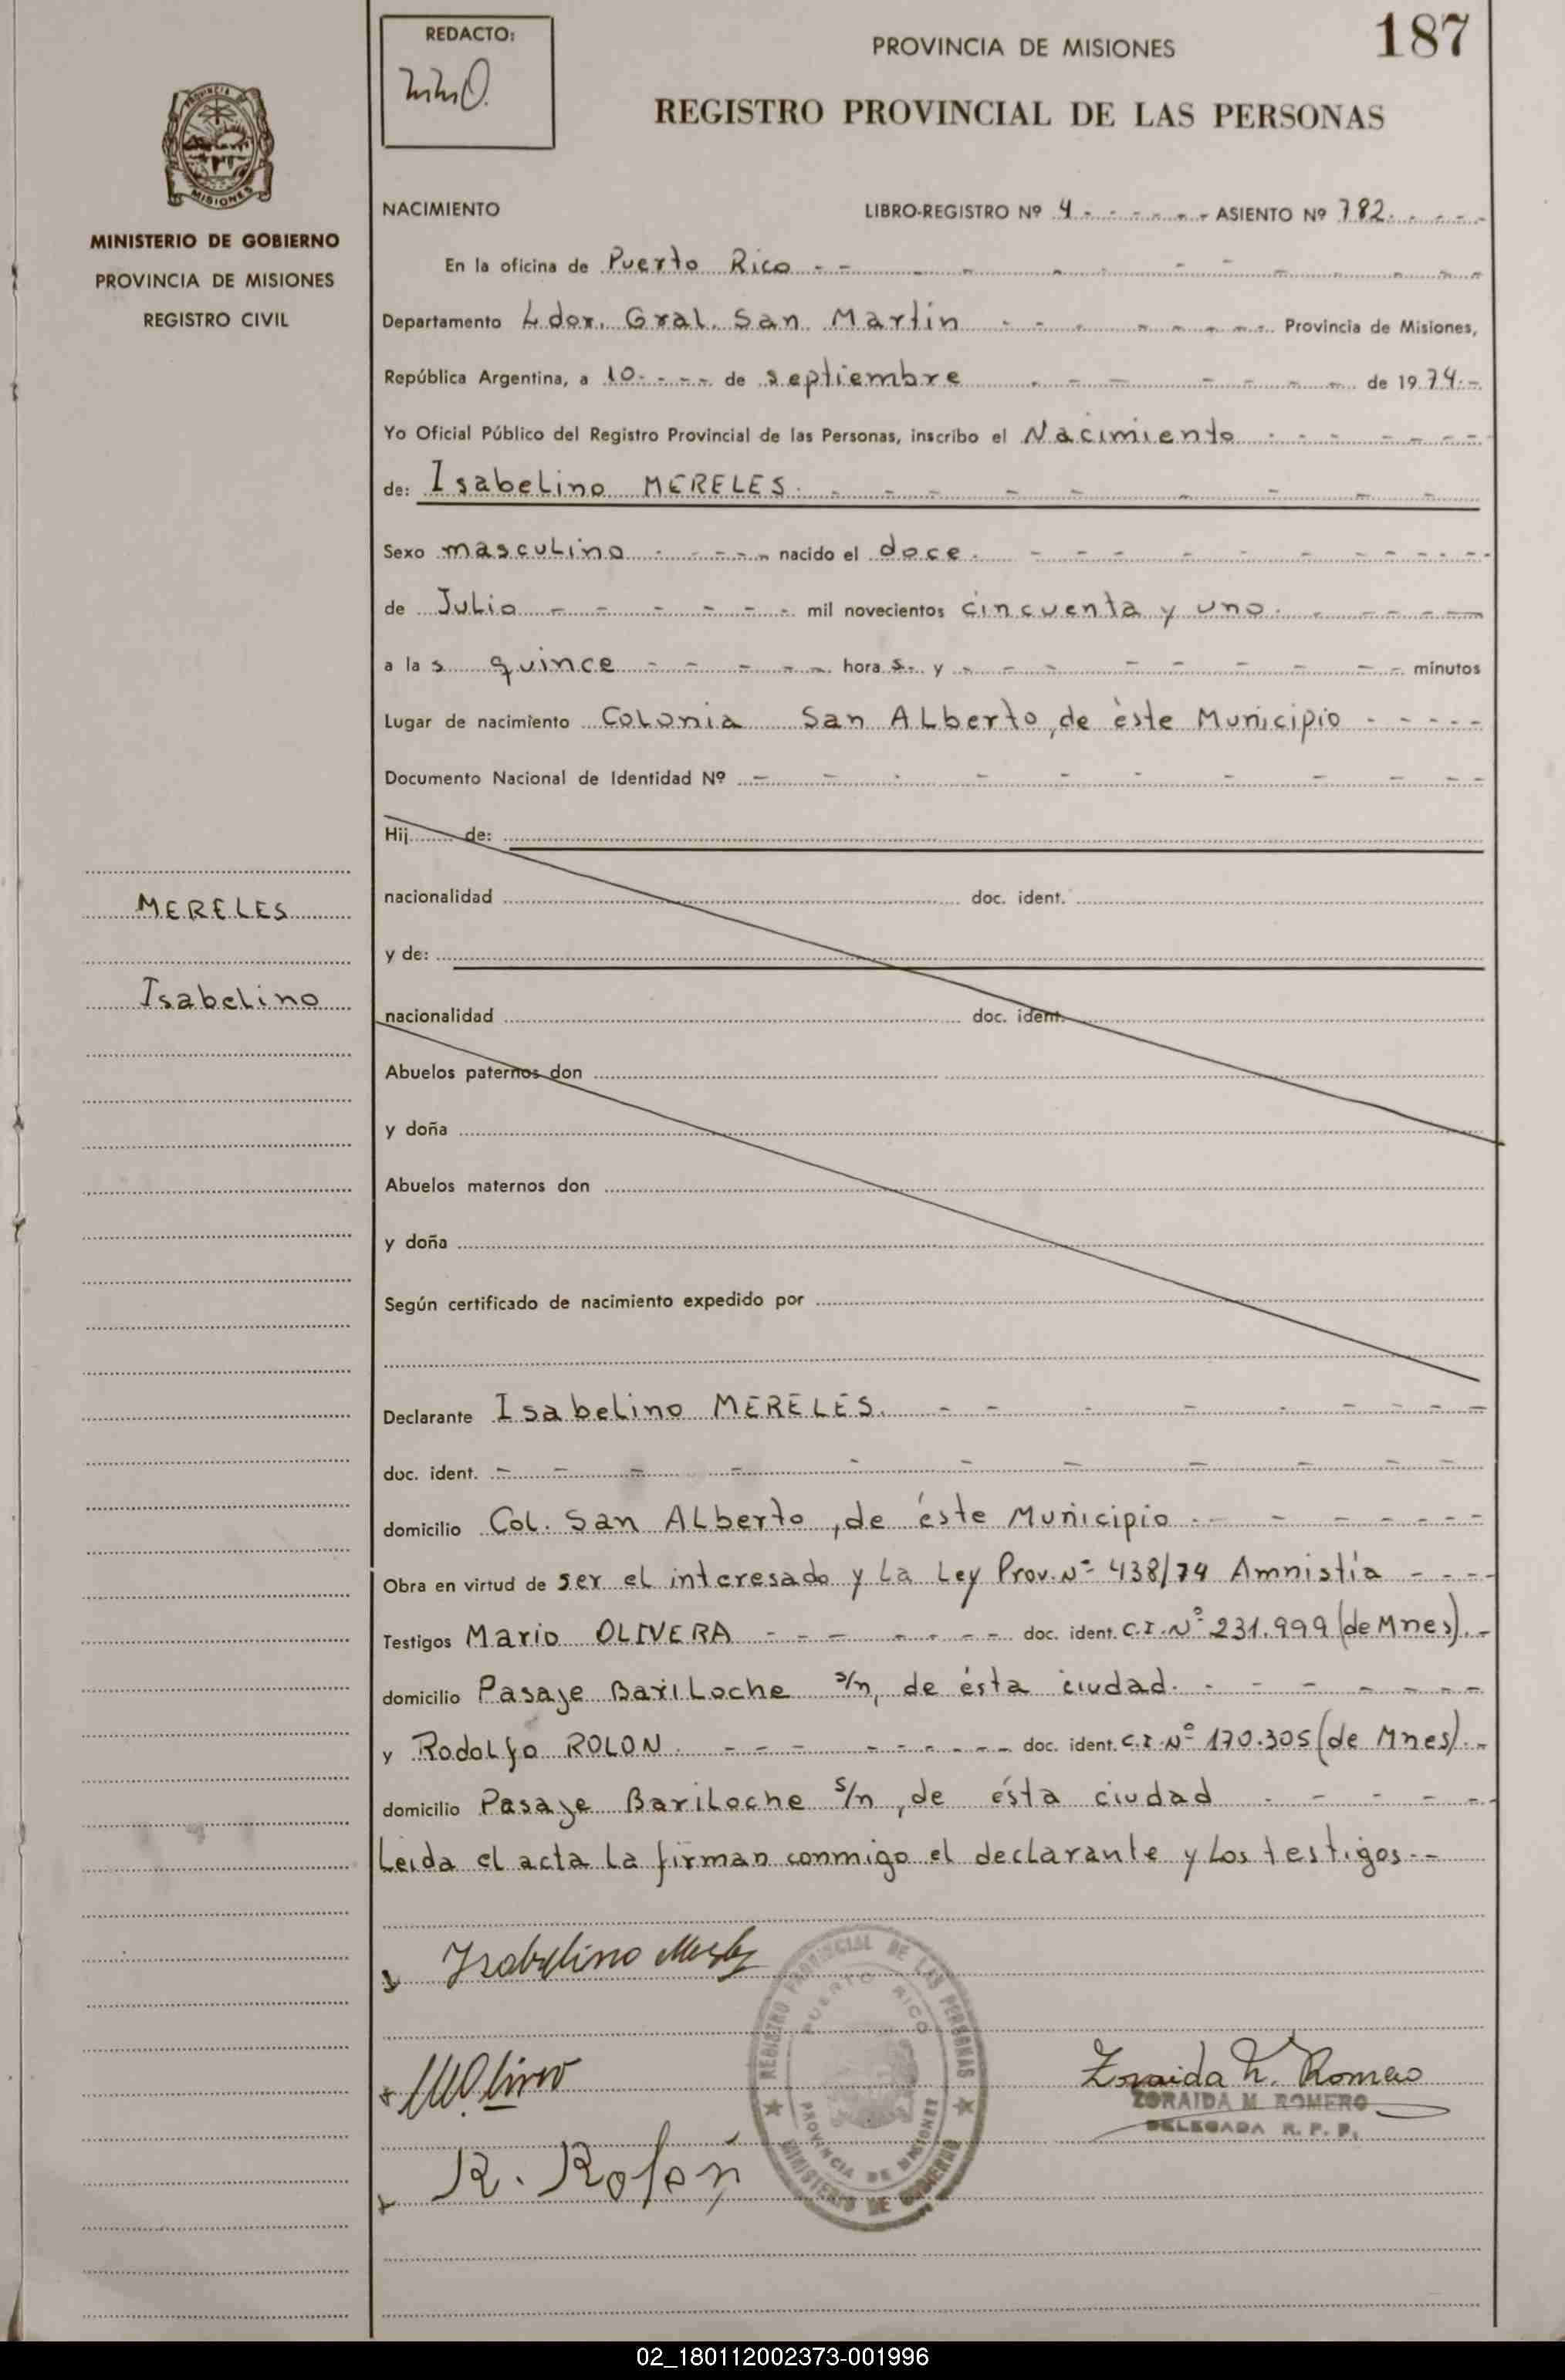 REDACTO:
PROVINCIA DE MISIONES
187
REGISTRO PROVINCIAL DE LAS PERSONAS
PROVINCIA DE
MISIONES
MINISTERIO DE GOBIERNO
PROVINCIA DE MISIONES
REGISTRO CIVIL
MERELES
Isabelino
NACIMIENTO LIBRO-REGISTRO Nº 4 ASIENTO Nº 782
En la oficina de Puerto Rico
Departamento Ldor. Gral. San Martin Provincia de Misiones,
República Argentina, a 10 de septiembre de 1974
Yo Oficial Público del Registro Provincial de las Personas, inscribo el Nacimiento
de: Isabelino MERELES
Sexo masculino nacido el doce
de Julio mil novecientos cincuenta y uno
a las quince horas y minutos
Lugar de nacimiento Colonia San Alberto, de èste Municipio
Documento Nacional de Identidad Nº
Hij de:
nacionalidad doc. ident.
y de:
nacionalidad doc. ident.
Abuelos paternos don
y doña
Abuelos maternos don
y doña
Según certificado de nacimiento expedido por
Declarante Isabelino MERELES.
doc. ident.
domicilio Col. San Alberto, de éste Municipio
Obra en virtud de ser el interesado y la Ley Prov. Nº 438/74 Amnistía
Testigos Mario OLIVERA doc. ident. C.I. Nº 231.999 (de Mnes).
domicilio Pasaje Bariloche s/n, de ésta ciudad.
y Rodolfo ROLON. doc. ident. C.I. Nº 170.305 (de Mnes).
domicilio Pasaje Bariloche s/n, de ésta ciudad
Leida el acta la firman conmigo el declarante y los testigos.
REGISTRO PROVINCIAL DE LAS PERSONAS
PUERTO RICO
PROVINCIA DE MISIONES
MINISTERIO DE GOBIERNO
Zoraida M. Romero
ZORAIDA M. ROMERO
DELEGADA R. P. P.
R. Rolón
02_180112002373-001996